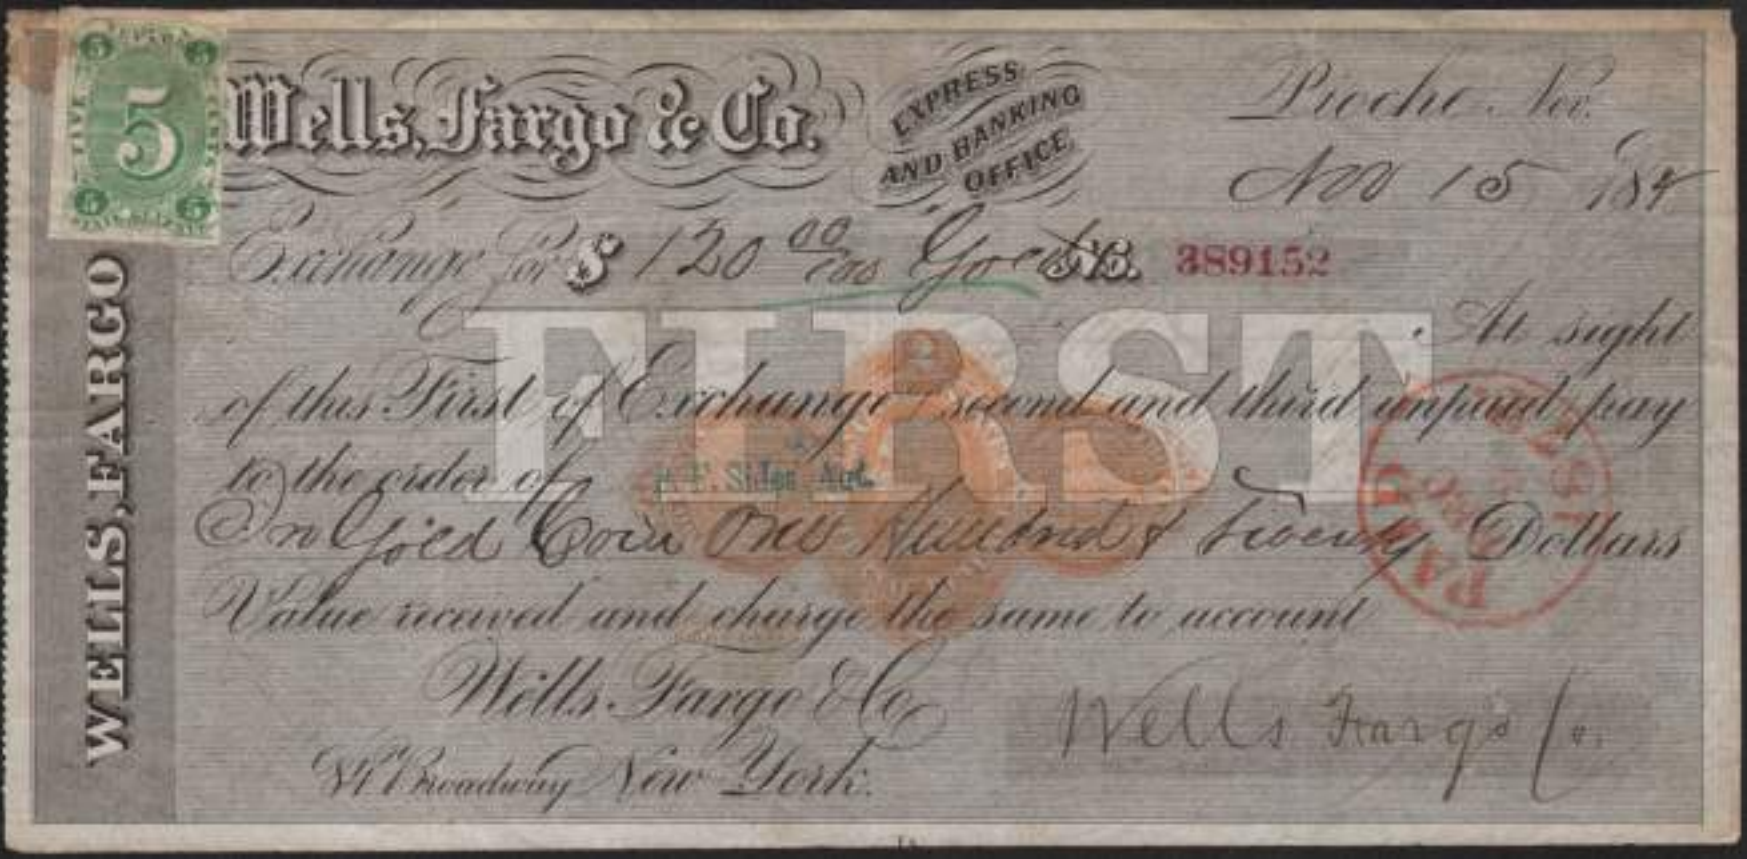 5 5
FIVE 5 CENTS
5 5
Wells, Fargo & Co.
EXPRESS
AND BANKING
OFFICE
Pioche Nev.
Nov 15 187
Exchange for $ 120 00/100 Gold No. 389152
FIRST
At sight
of this First of Exchange second and third unpaid pay
to the order of
In Gold Coin One Hundred & Twenty Dollars
Value received and charge the same to account
Wells Fargo & Co
Wells Fargo Co.
Broadway New York.
WELLS, FARGO
PAID
2